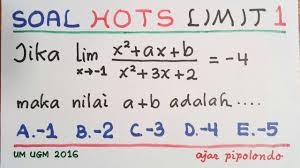 SOAL HOTS LIMIT 1
Jika lim x→-1 x²+ax+b / x²+3x+2 = -4
maka nilai a+b adalah ....
A.-1 B.-2 C-3 D.-4 E.-5
UM UGM 2016 ajar pipolondo